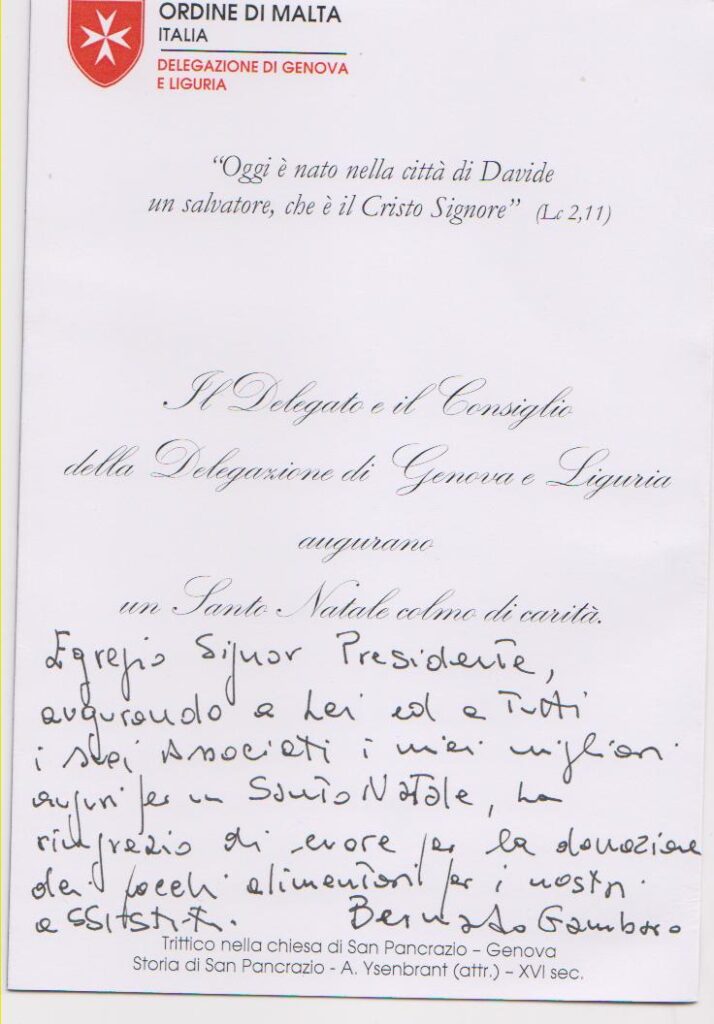 ORDINE DI MALTA
ITALIA
DELEGAZIONE DI GENOVA
E LIGURIA
“Oggi è nato nella città di Davide
un salvatore, che è il Cristo Signore” (Lc 2,11)
Il Delegato e il Consiglio
della Delegazione di Genova e Liguria
augurano
un Santo Natale colmo di carità.
Egregio Signor Presidente,
augurando a Lei ed a Tutti
i suoi Associati i miei migliori
auguri per un Santo Natale, La
ringrazio di cuore per la donazione
dei pacchi alimentari per i nostri
assistiti. Bernardo Gambaro
Trittico nella chiesa di San Pancrazio – Genova
Storia di San Pancrazio - A. Ysenbrant (attr.) – XVI sec.